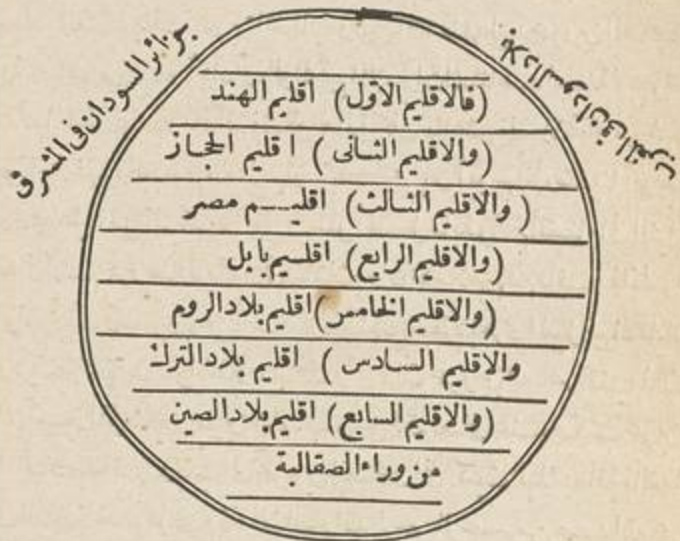 بلاد السودان فى المغرب
جزائر السودان فى المشرق
(فالاقليم الاول) اقليم الهند
(والاقليم الثانى) اقليم الحجاز
(والاقليم الثالث) اقليم مصر
(والاقليم الرابع) اقليم بابل
(والاقليم الخامس) اقليم بلاد الروم
والاقليم السادس) اقليم بلاد الترك
(والاقليم السابع) اقليم بلاد الصين
من وراء الصقالبة